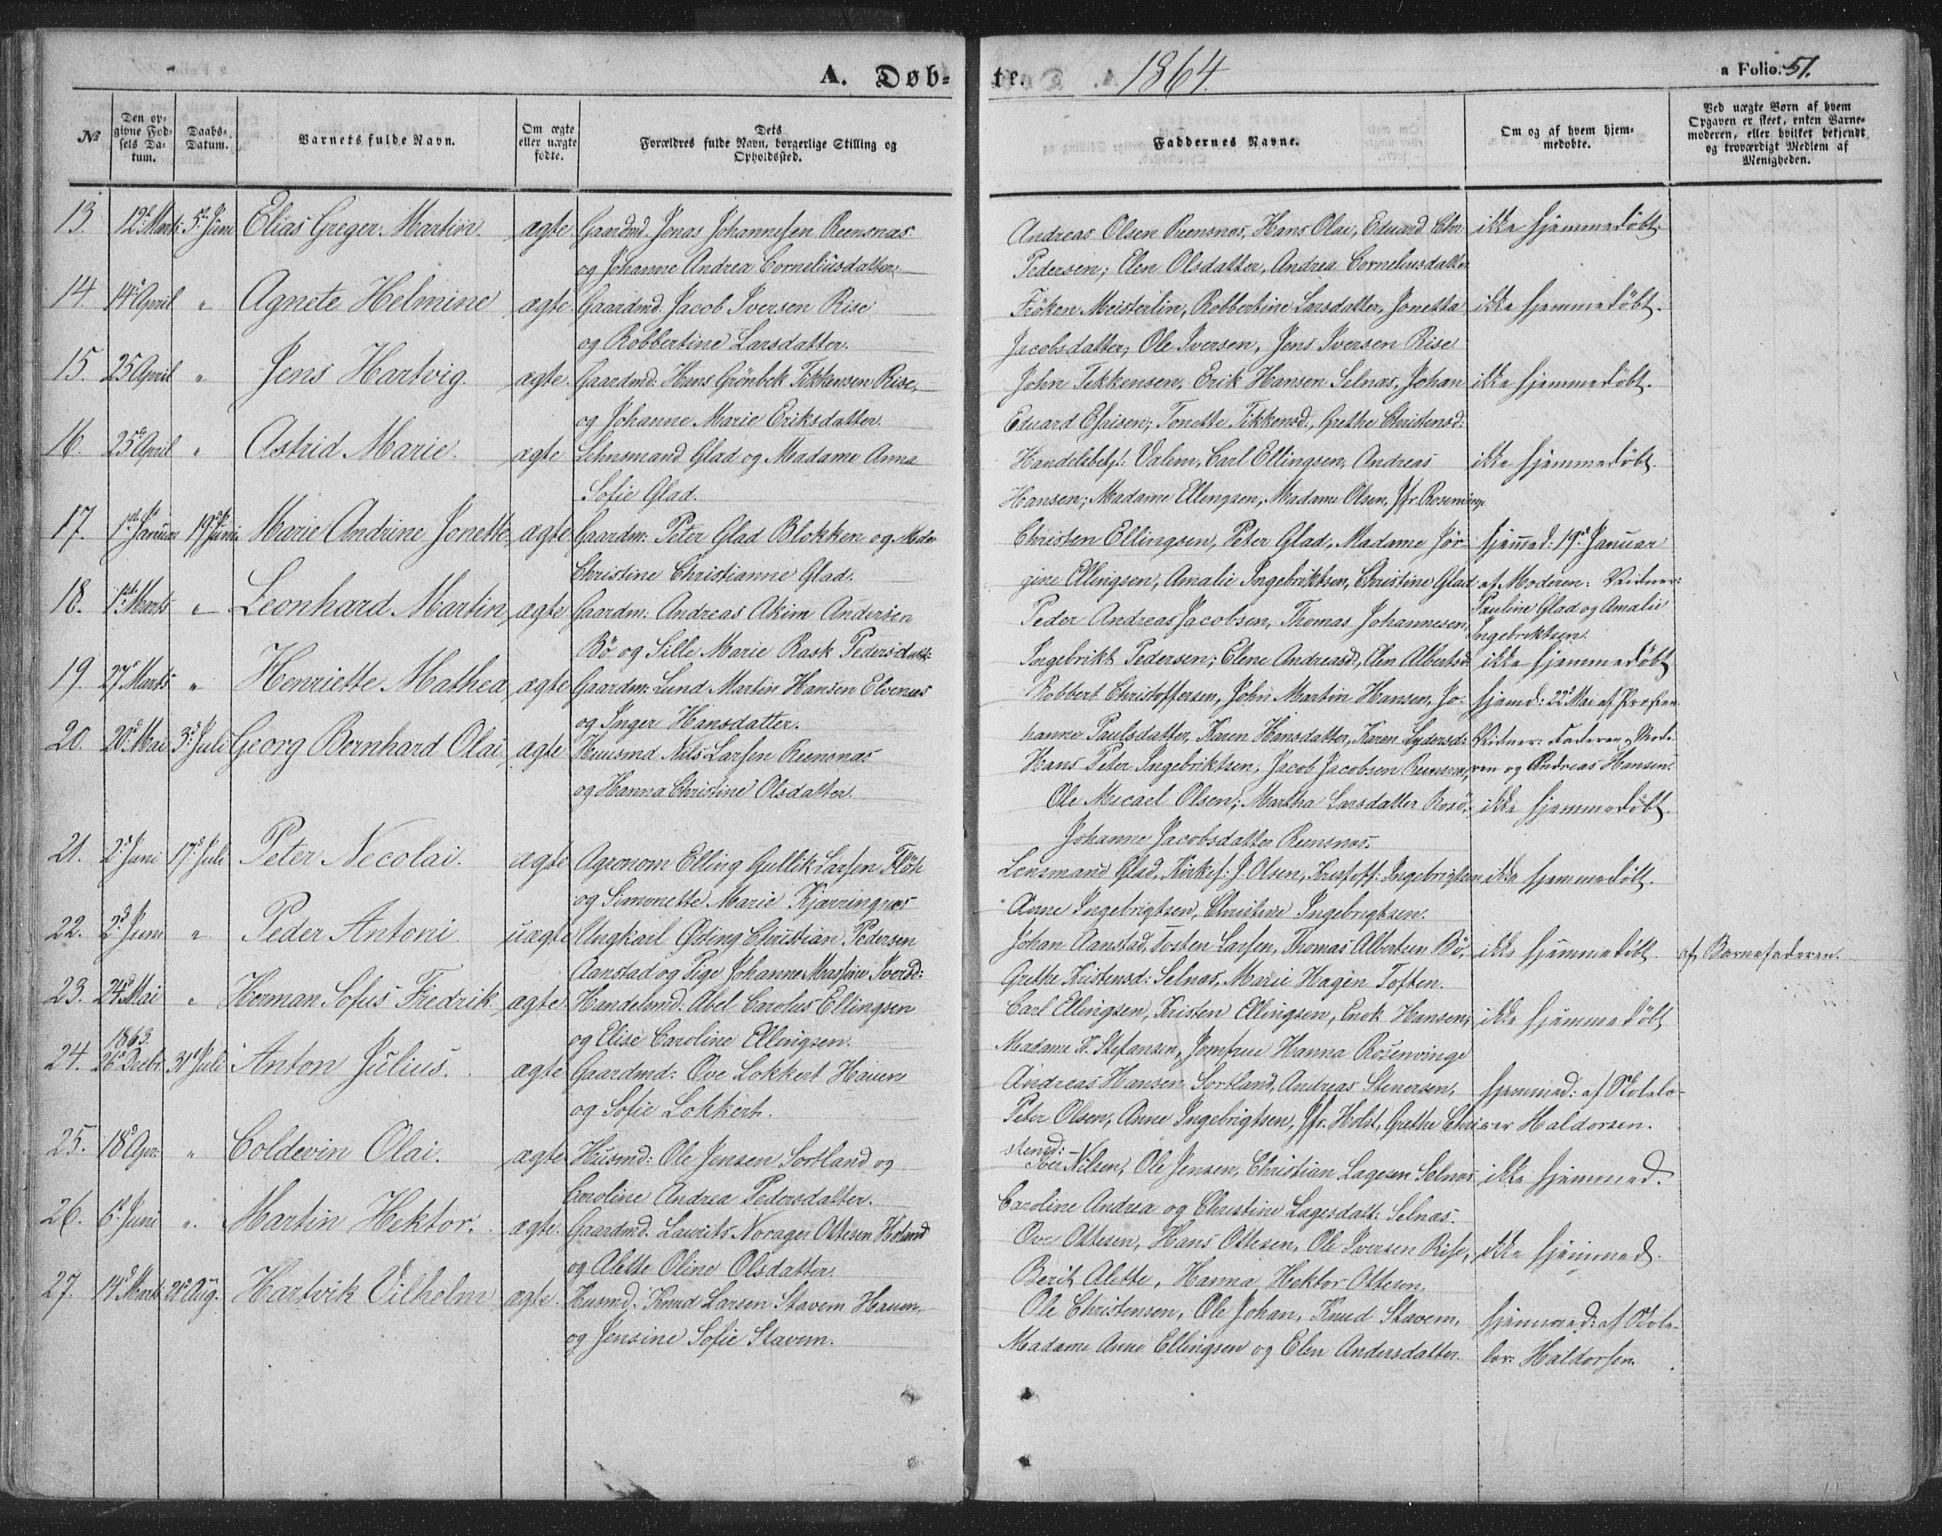 A. Døb-
te. 1864.
a Folio. 51.
№
Den opgivne Fødsels Datum.
Daabs-Datum.
Barnets fulde Navn.
Om ægte eller uægte fødte.
Dets Forældres fulde Navn, borgerlige Stilling og Opholdssted.
Faddernes Navne.
Om og af hvem hjemmedøbte.
Ved uægte Børn af hvem Opgaven er skeet, enten Barnemoderen, eller hvilket bekjendt og troværdigt Medlem af Menigheden.
13. 12te Marts 5te Juni Elias Greger Martin. ægte Gaardmd. Jonas Johannesen Reensnæs
og Johanne Andrea Corneliusdatter.
Andreas Olsen Reensnæs, Hans Olai, Eduard Chr. ikke hjemmedøbt.
Pedersen; Elen Olsdatter, Andrea Corneliusdatter
14. 14de April " Agnete Helmine ægte Gaardmd. Jacob Iversen Rise
og Robbertine Larsdatter.
Frøken Meisterlin, Robbertine Larsdatter, Jonetta ikke hjemmedøbt.
Jacobsdatter; Ole Iversen, Jens Iversen Rise
15. 25 April " Jens Hartvig. ægte. Gaardmd. Hans Grönbek Tikkensen Rise,
og Johanne Marie Eriksdatter.
John Tikkensen, Erik Hansen Selnæs, Johan ikke hjemmedøbt.
Eduard Esaisen; Tonette Tikkensd., Grethe Christensd:
16. 25de April " Astrid Marie. ægte Lehnsmand Glad og Madame Anna
Sofie Glad.
Handelsbetj: Valem, Carl Ellingsen, Andreas ikke hjemmedøbt.
Hansen; Madame Ellingsen, Madame Olsen, Jfr Rosenvinge
17. 1ste Januar 19de Juni Marie Andrine Jonette, ægte Gaardm: Peter Glad Blokken og Mad.
Christine Christianne Glad.
Christen Ellingsen, Peter Glad, Madame Jør- hjemmed: 19de Januar
gine Ellingsen, Amalie Ingebriktsen, Christine Glad af Moderen. Vidner:
Pauline Glad og Amalie
Ingebriktsen.
18. 1ste Marts " Leonhard Martin, ægte Gaardm: Andreas Akim Andersen
Bø og Sille Marie Rask Pedersdatt:
Peder Andreas Jacobsen, Thomas Johannesen,
Ingebrikt Pedersen; Elene Andreasd., Elen Albertsd. ikke hjemmedøbt
19. 27de Marts " Henriette Mathea, ægte Gaardm: Lund Martin Hansen Elvenes
og Inger Hansdatter.
Robbert Christoffersen, John Martin Hansen, Jo- hjemd: 22de Mai af Præsten
hanne Paulsdatter, Karen Hansdatter, Karen Lydersd: Vidner: Faderen, Mode-
ren og Andreas Hansen.
20. 20de Mai 3de Juli Georg Bernhard Olai, ægte Huusmd Nils Larsen Reensnæs
og Hanna Christine Olsdatter.
Hans Peter Ingebriktsen, Jacob Jacobsen Reensnæs,
Ole Micael Olsen; Martha Larsdatter Bosö, ikke hjemmedøbt.
Johanne Jacobsdatter Reensnæs.
21. 2de Juni 17de Juli Peter Necolai. ægte Agronom Elling Gullik Larsen Fløte
og Simonette Marie Kjærringnæs
Lensmand Glad, Kirkes: J. Olsen, Kristoff: Ingebrigtsen ikke hjemmedøbt.
Anne Ingebrigtsen, Christine Ingebrigtsen.
22. 2de Juni " Peder Antoni. uægte Ungkarl Østing Christian Pedersen
Aanstad og Pige Johanne Martine Iversd:
Johan Aanstad, Tosten Larsen, Thomas Albertsen Bö, ikke hjemmedøbt. af Barnefaderen.
Grethe Kristensd: Selnæs, Marie Hagen Toften.
23. 24de Mai " Herman Sofus Fredrik. ægte Handelsmd: Abel Carolus Ellingsen
og Elise Caroline Ellingsen.
Carl Ellingsen, Kristen Ellingsen, Enok Hansen, ikke hjemmedøbt
Madame K. Stefansen, Jomfrue Hanna Rosenvinge
24. 1863. 26de Decbr. 31de Juli Anton Julius. ægte Gaardmd: Ove Lokkert Hauen
og Sofie Lokkert.
Andreas Hansen Sortland, Andreas Stenersen, hjemmed: af Skolelæ-
Peter Olsen, Anne Ingebrigtsen, Jfr. Holst, Grethe Chri- rer Haldorsen.
stensd:
25. 18de Apr. " Coldevin Olai. ægte Husmd: Ole Jensen Sortland og
Caroline Andrea Pedersdatter.
Iver Nilsen, Ole Jensen, Christian Lagesen Selnæs ikke hjemmed.
Caroline Andrea og Christine Lagesdatt: Selnæs.
26. 6te Juni " Martin Hektor. ægte. Gaardmd. Laurits Norager Ottesen Holand
og Alette Oline Olsdatter.
Ove Ottesen, Hans Ottesen, Ole Iversen Rise, ikke hjemmed.
Berit Alette, Hanna Hektor Ottesen.
27. 14de Marts 21de Aug. Hartvik Vilhelm ægte. Husmd. Knud Larsen Stavem Hauen,
og Jensine Sofie Stavem.
Ole Christensen, Ole Johan, Knud Stavem, hjemmed: af Skole-
Madame Anne Ellingsen og Elen Andersdatter. lær: Haldorsen.